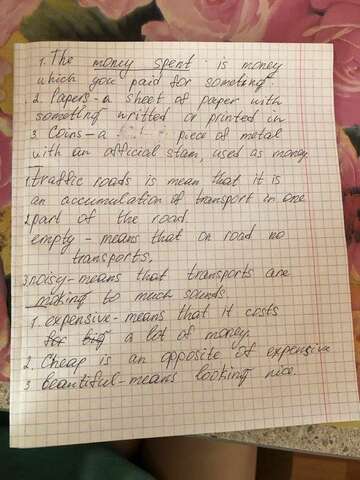 1. The money spent is money
which you paid for someting
2. Papers - a sheet of paper with
someting writted or printed in
3. Coins - a piece of metal
with an official stam, used as money.
1. Traffic roads is mean that it is
an accumulation of transport in one
2 part of the road
empty - means that on road no
transports.
3. noisy - means that transports are
making to much sounds.
1. expensive - means that it costs
a lot of money.
2. Cheap is an opposite of expensive
3 beautiful - means looking nice.